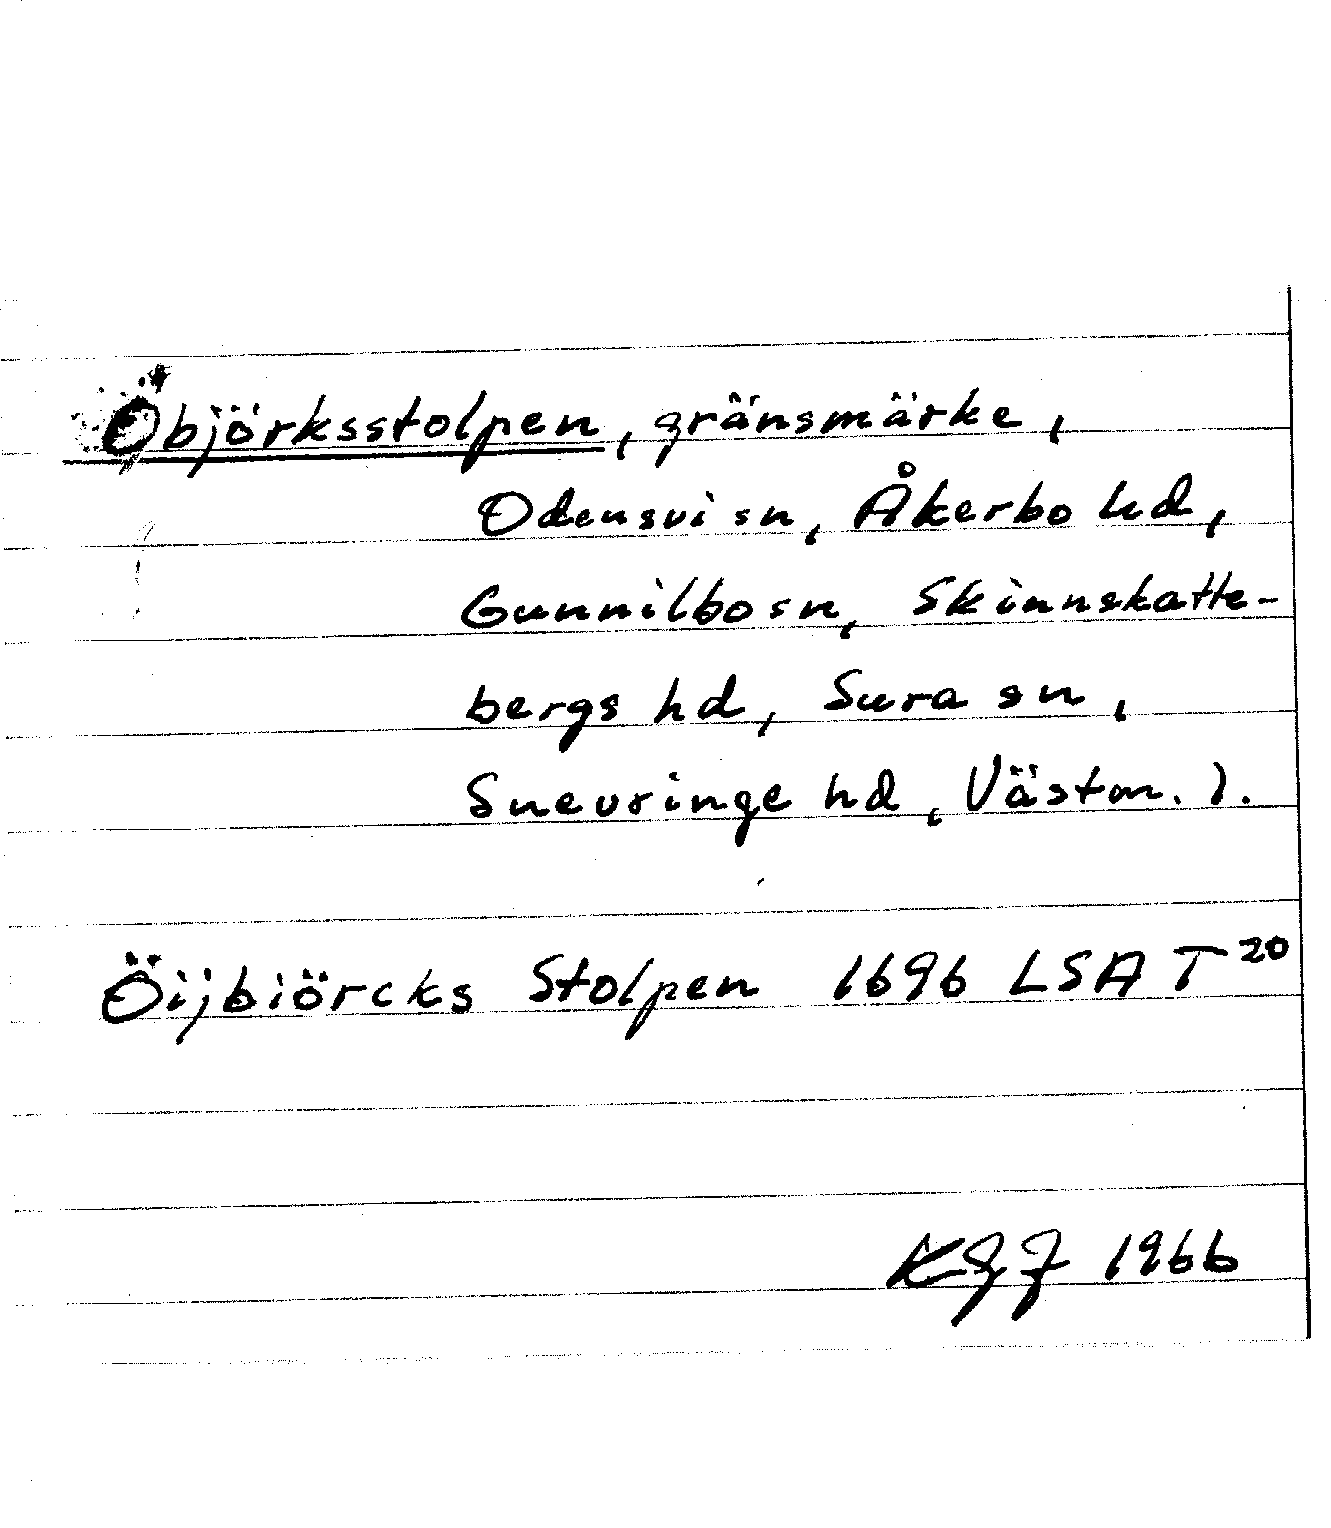 Öbjörksstolpen, gränsmärke,
Odensvi sn, Åkerbo hd,
Gunnilbo sn, Skinnskatte-
bergs hd, Sura sn,
Snevringe hd, Västm. l.
Öijbiörcks Stolpen 1696 LSA T 20
KGJ 1966